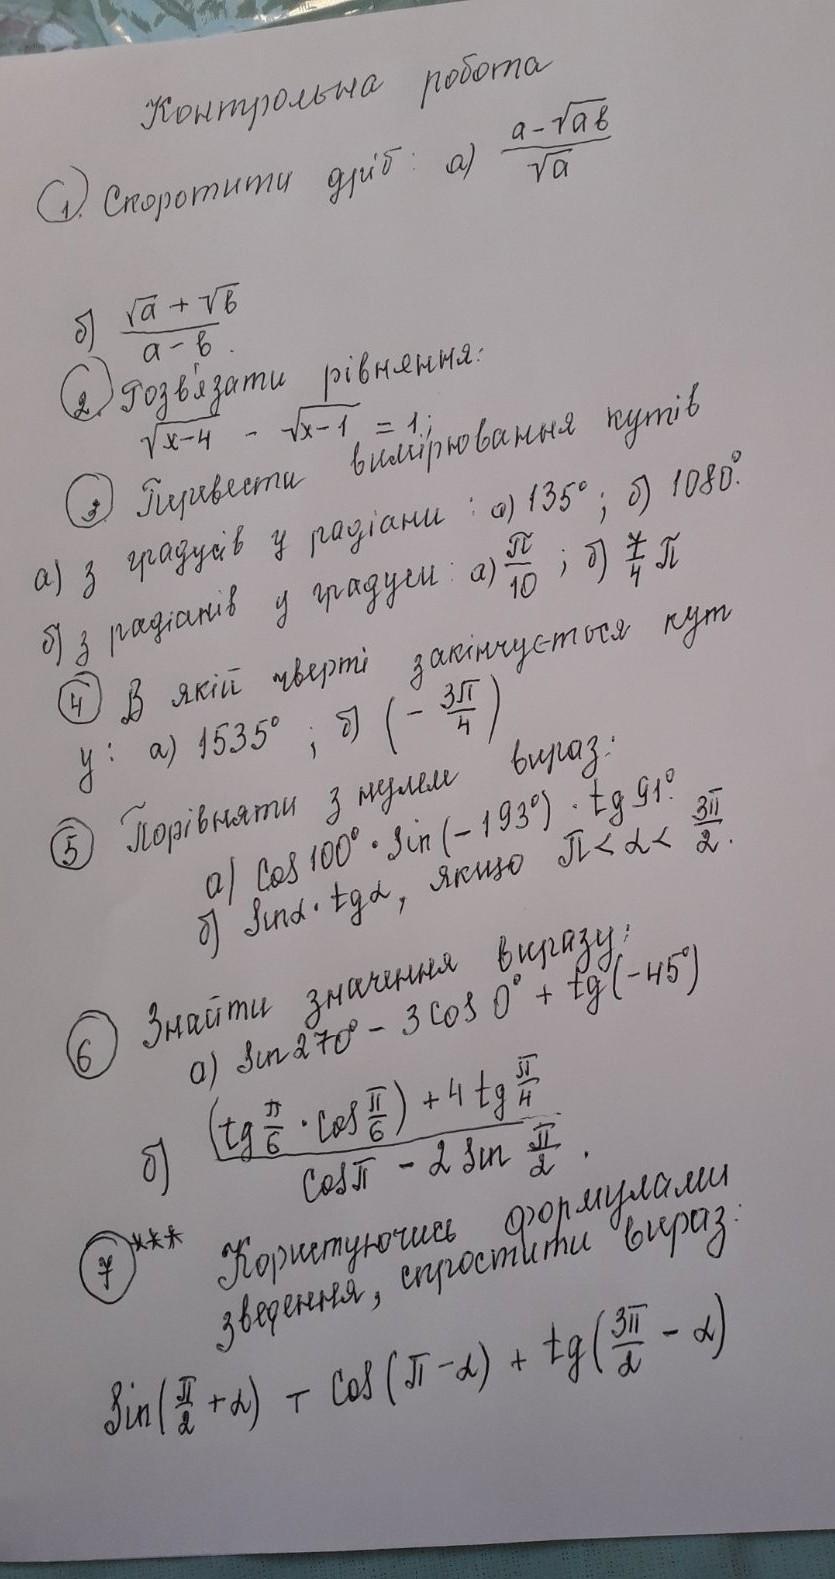 Контрольна робота
1. Скоротити дріб: а) (a-√ab)/√a
б) (√a + √b)/(a-b).
2. Розв'язати рівняння:
√x-4 - √x-1 = 1;
3. Перевести вимірювання кутів
а) з градусів у радіани : а) 135°; б) 1080°.
б) з радіанів у градуси: а) π/10 ; б) 7/4 π
4 В якій чверті закінчується кут
у: а) 1535° ; б) (- 3π/4)
5 Порівняти з нулем вираз:
а) cos 100° · sin(-193°) · tg 91°.
б) sinα · tgα, якщо π<α< 3π/2.
6 Знайти значення виразу:
а) sin 270° - 3 cos 0° + tg(-45°)
б) ((tg π/6 · cos π/6) + 4 tg π/4)/(cos π - 2 sin π/2).
7*** Користуючись формулами
зведення, спростити вираз:
sin(π/2 +α) - cos(π-α) + tg(3π/2 - α)